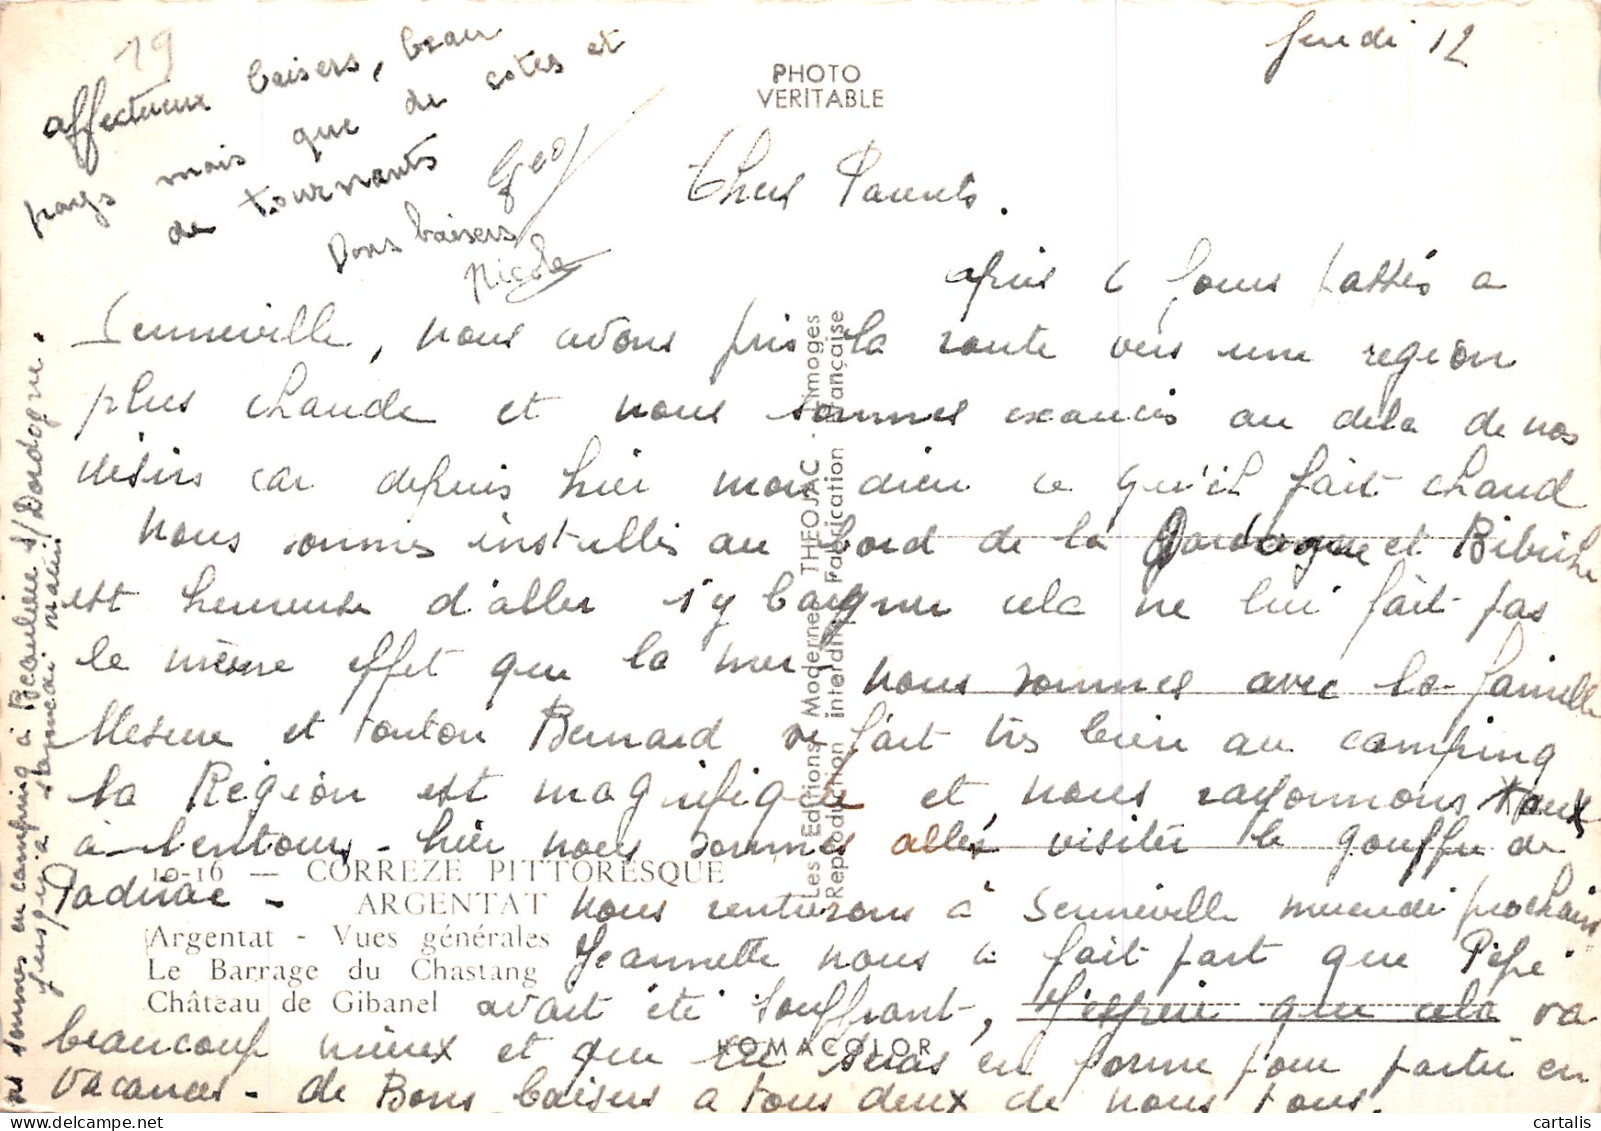 Jeudi 12
19
affectueux baisers, beau
pays mais que de cotes et
de tournants
Geo
Bons baisers
Nicole
PHOTO
VERITABLE
Chers Parents.
après 6 jours passés a
Senneville, nous avons pris la route vers une region
plus chaude et nous sommes exaucés au dela de nos
désirs car depuis hier mon dieu ce qu'il fait chaud
nous sommes installés au bord de la Dordogne et Bibiche
est heureuse d'aller s'y baigner cela ne lui fait pas
le même effet que la mer, nous sommes avec la famille
Mesure et tonton Bernard se fait très bien au camping
la Région est magnifique et nous rayonnons aux
à lentours - hier nous sommes allés visiter le gouffre de
Padirac -
nous rentrerons à Senneville mercredi prochain
Jeannette nous a fait part que Pépé
avait été souffrant, j'espère que cela va
beaucoup mieux et que tu seras en forme pour partir en
vacances - de Bons baisers a tous deux de nous tous.
ns sommes en camping à Beaulieu s/Dordogne.
jusqu'à samedi matin
10-16 — CORREZE PITTORESQUE
ARGENTAT
Argentat - Vues générales
Le Barrage du Chastang
Château de Gibanel
Les Editions Modernes THEOJAC - Limoges
Reproduction interdite Fabrication Française
KOMACOLOR
cartalis
delcampe.net